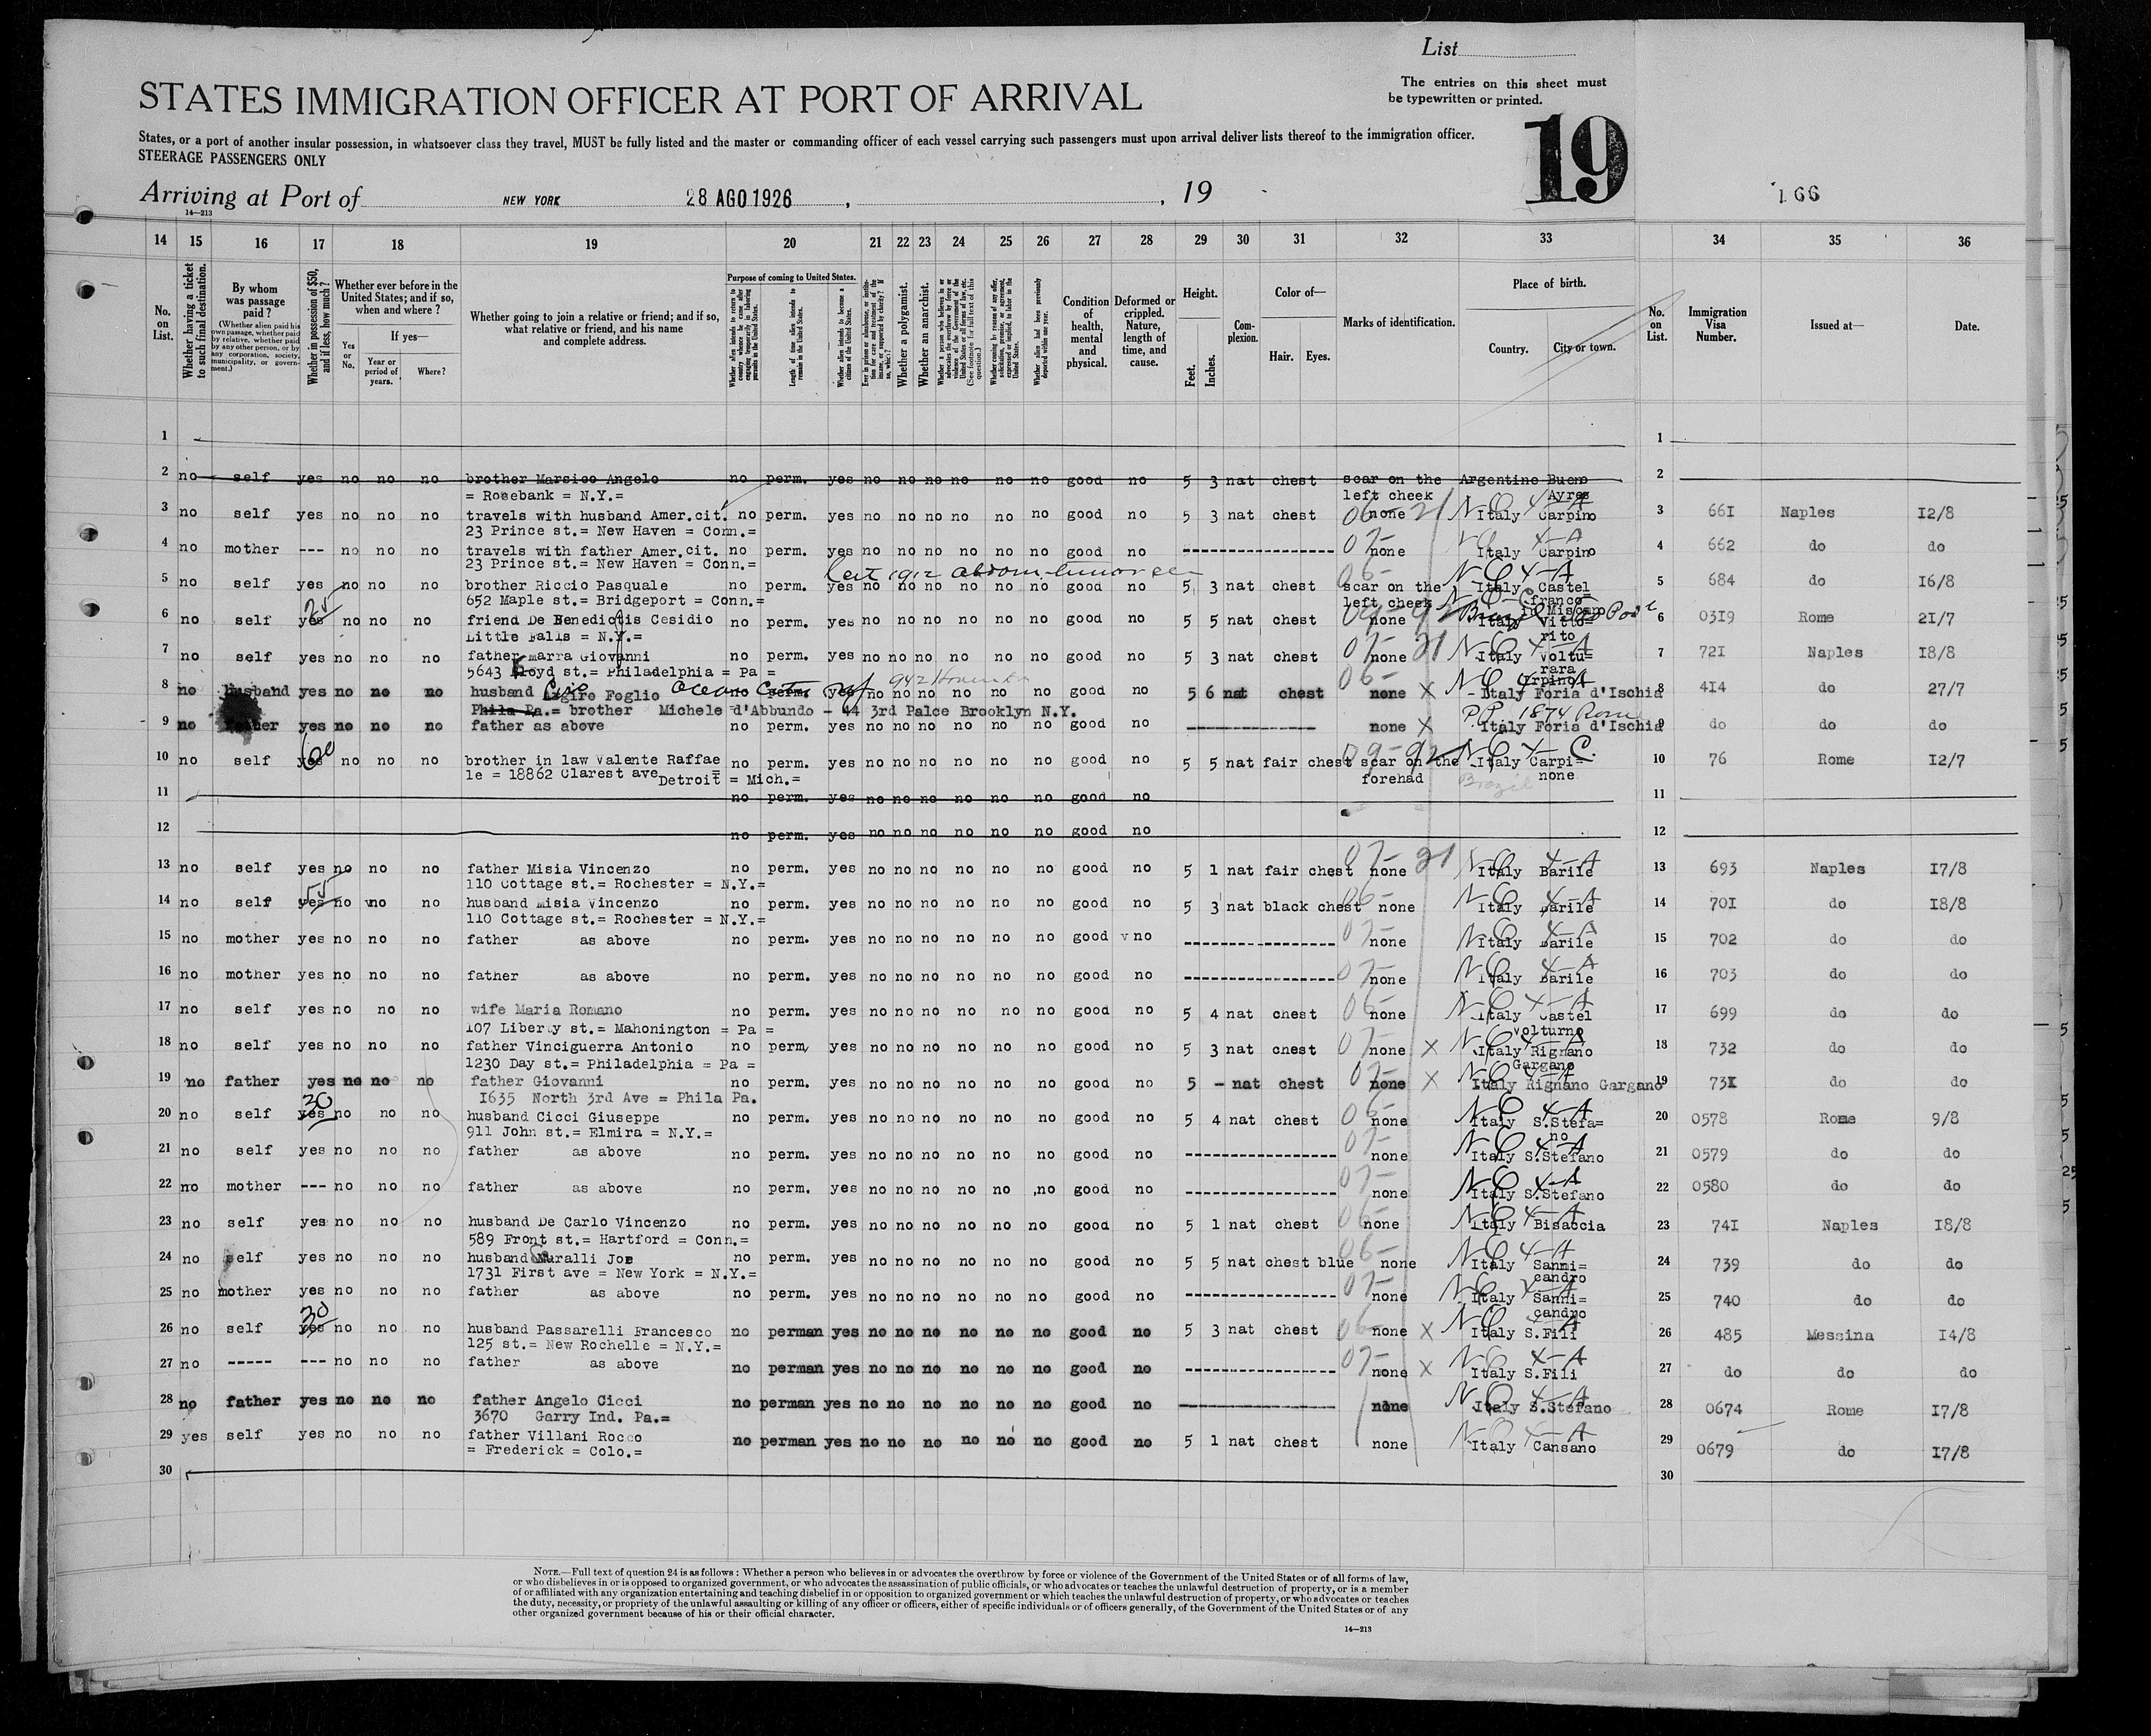 List
The entries on this sheet must
be typewritten or printed.
STATES IMMIGRATION OFFICER AT PORT OF ARRIVAL
19
States, or a port of another insular possession, in whatsoever class they travel, MUST be fully listed and the master or commanding officer of each vessel carrying such passengers must upon arrival deliver lists thereof to the immigration officer.
STEERAGE PASSENGERS ONLY
Arriving at Port of NEW YORK 28 AGO 1926, , 19
166
14—213
14 15 16 17 18 19 20 21 22 23 24 25 26 27 28 29 30 31 32 33 34 35 36
No. on List.
Whether having a ticket to such final destination.
By whom was passage paid?
(Whether alien paid his own passage, whether paid by relative, whether paid by any other person, or by any corporation, society, municipality, or government.)
Whether in possession of $50, and if less, how much?
Whether ever before in the United States; and if so, when and where?
If yes—
Yes or No.
Year or period of years.
Where?
Whether going to join a relative or friend; and if so, what relative or friend, and his name and complete address.
Purpose of coming to United States.
Length of time alien intends to remain in the United States.
Whether alien intends to become a citizen of the United States.
Whether a polygamist.
Whether an anarchist.
Condition of health, mental and physical.
Deformed or crippled. Nature, length of time, and cause.
Height.
Feet.
Inches.
Complexion.
Color of—
Hair.
Eyes.
Marks of identification.
Place of birth.
Country.
City or town.
No. on List.
Immigration Visa Number.
Issued at—
Date.
1 1
2 no self yes no no no brother Marsico Angelo no perm. yes no no no no no no good no 5 3 nat chest scar on the Argentine Bueno 2
= Rosebank = N.Y.= left cheek Ayres
3 no self yes no no no travels with husband Amer.cit. no perm. yes no no no no no no good no 5 3 nat chest none Italy Carpino 3 661 Naples 12/8
23 Prince st.= New Haven = Conn.=
4 no mother --- no no no travels with father Amer.cit. no perm. yes no no no no no no good no ---------- none Italy Carpino 4 662 do do
23 Prince st.= New Haven = Conn.=
5 no self yes no no no brother Riccio Pasquale no perm. yes no no no no no no good no 5 3 nat chest scar on the Italy Castel 5 684 do 16/8
652 Maple st.= Bridgeport = Conn.= left cheek franco= in Miscano
6 no self yes 25 no no no friend De Benedictis Cesidio no perm. yes no no no no no no good no 5 5 nat chest none Italy Vitto= 6 0319 Rome 21/7
Little Falls = N.Y.= rito
7 no self yes no no no father Marra Giovanni no perm. yes no no no no no no good no 5 3 nat chest none Italy Voltu= 7 721 Naples 18/8
5643 Boyd st.= Philadelphia = Pa = rara Irpino
8 no husband yes no no no husband Ciro Foglio Ocean City NJ no perm. yes no no no no no no good no 5 6 nat chest none X Italy Foria d'Ischia 8 414 do 27/7
Phila Pa.= brother Michele d'Abbundo - 44 3rd Palce Brooklyn N.Y. P.P. 1874 Rome
9 no father yes no no no father as above no perm. yes no no no no no no good no ---------- none X Italy Foria d'Ischia 9 do do do
10 no self yes 60 no no no brother in law Valente Raffae no perm. yes no no no no no no good no 5 5 nat fair chest scar on the Italy Carpi= 10 76 Rome 12/7
le = 18862 Clarest ave Detroit = Mich.= forehad none Brazil
11 no perm. yes no no no no no no good no 11
12 no perm. yes no no no no no no good no 12
13 no self yes no no no father Misia Vincenzo no perm. yes no no no no no no good no 5 1 nat fair chest none Italy Barile 13 693 Naples 17/8
110 Cottage st.= Rochester = N.Y.=
14 no self yes 55 no no no husband Misia Vincenzo no perm. yes no no no no no no good no 5 3 nat black chest none Italy Barile 14 701 do 18/8
110 Cottage st.= Rochester = N.Y.=
15 no mother yes no no no father as above no perm. yes no no no no no no good no ---------- none Italy Barile 15 702 do do
16 no mother yes no no no father as above no perm. yes no no no no no no good no ---------- none Italy Barile 16 703 do do
17 no self yes no no no wife Maria Romano no perm. yes no no no no no no good no 5 4 nat chest none Italy Castel 17 699 do do
107 Liberty st.= Mahonington = Pa = volturno
18 no self yes no no no father Vinciguerra Antonio no perm, yes no no no no no no good no 5 3 nat chest none X Italy Rignano 18 732 do do
1230 Day st.= Philadelphia = Pa = Gargano
19 no father yes no no no father Giovanni no perm. yes no no no no no no good no 5 - nat chest none X Italy Rignano Gargano 19 731 do do
1635 North 3rd Ave = Phila Pa.
20 no self yes 30 no no no husband Cicci Giuseppe no perm. yes no no no no no no good no 5 4 nat chest none Italy S.Stefa= 20 0578 Rome 9/8
911 John st.= Elmira = N.Y.= no
21 no self yes no no no father as above no perm. yes no no no no no no good no ---------- none Italy S.Stefano 21 0579 do do
22 no mother --- no no no father as above no perm. yes no no no no no no good no ---------- none Italy S.Stefano 22 0580 do do
23 no self yes no no no husband De Carlo Vincenzo no perm. yes no no no no no no good no 5 1 nat chest none Italy Bisaccia 23 741 Naples 18/8
589 Front st.= Hartford = Conn.=
24 no self yes no no no husband Joe no perm. yes no no no no no no good no 5 5 nat chest blue none Italy Sanni= 24 739 do do
1731 First ave = New York = N.Y.= candro
25 no mother yes no no no father as above no perm. yes no no no no no no good no ---------- none Italy Sanni= 25 740 do do
candro
26 no self yes 30 no no no husband Passarelli Francesco no perman yes no no no no no no good no 5 3 nat chest none X Italy S.Fili 26 485 Messina 14/8
125 st.= New Rochelle = N.Y.=
27 no ----- --- no no no father as above no perman yes no no no no no no good no ---------- none X Italy S.Fili 27 do do do
28 no father yes no no no father Angelo Cicci no perman yes no no no no no no good no ---------- none Italy S.Stefano 28 0674 Rome 17/8
3670 Garry Ind. Pa.=
29 yes self yes no no no father Villani Rocco no perman yes no no no no no no good no 5 1 nat chest none Italy Cansano 29 0679 do 17/8
= Frederick = Colo.=
30 30
NOTE.—Full text of question 24 is as follows: Whether a person who believes in or advocates the overthrow by force or violence of the Government of the United States or of all forms of law,
or who disbelieves in or is opposed to organized government, or who advocates the assassination of public officials, or who advocates or teaches the unlawful destruction of property, or is a member
of or affiliated with any organization entertaining and teaching disbelief in or opposition to organized government or which teaches the unlawful destruction of property, or who advocates or teaches
the duty, necessity, or propriety of the unlawful assaulting or killing of any officer or officers, either of specific individuals or of officers generally, of the Government of the United States or of any
other organized government because of his or their official character.
14—213